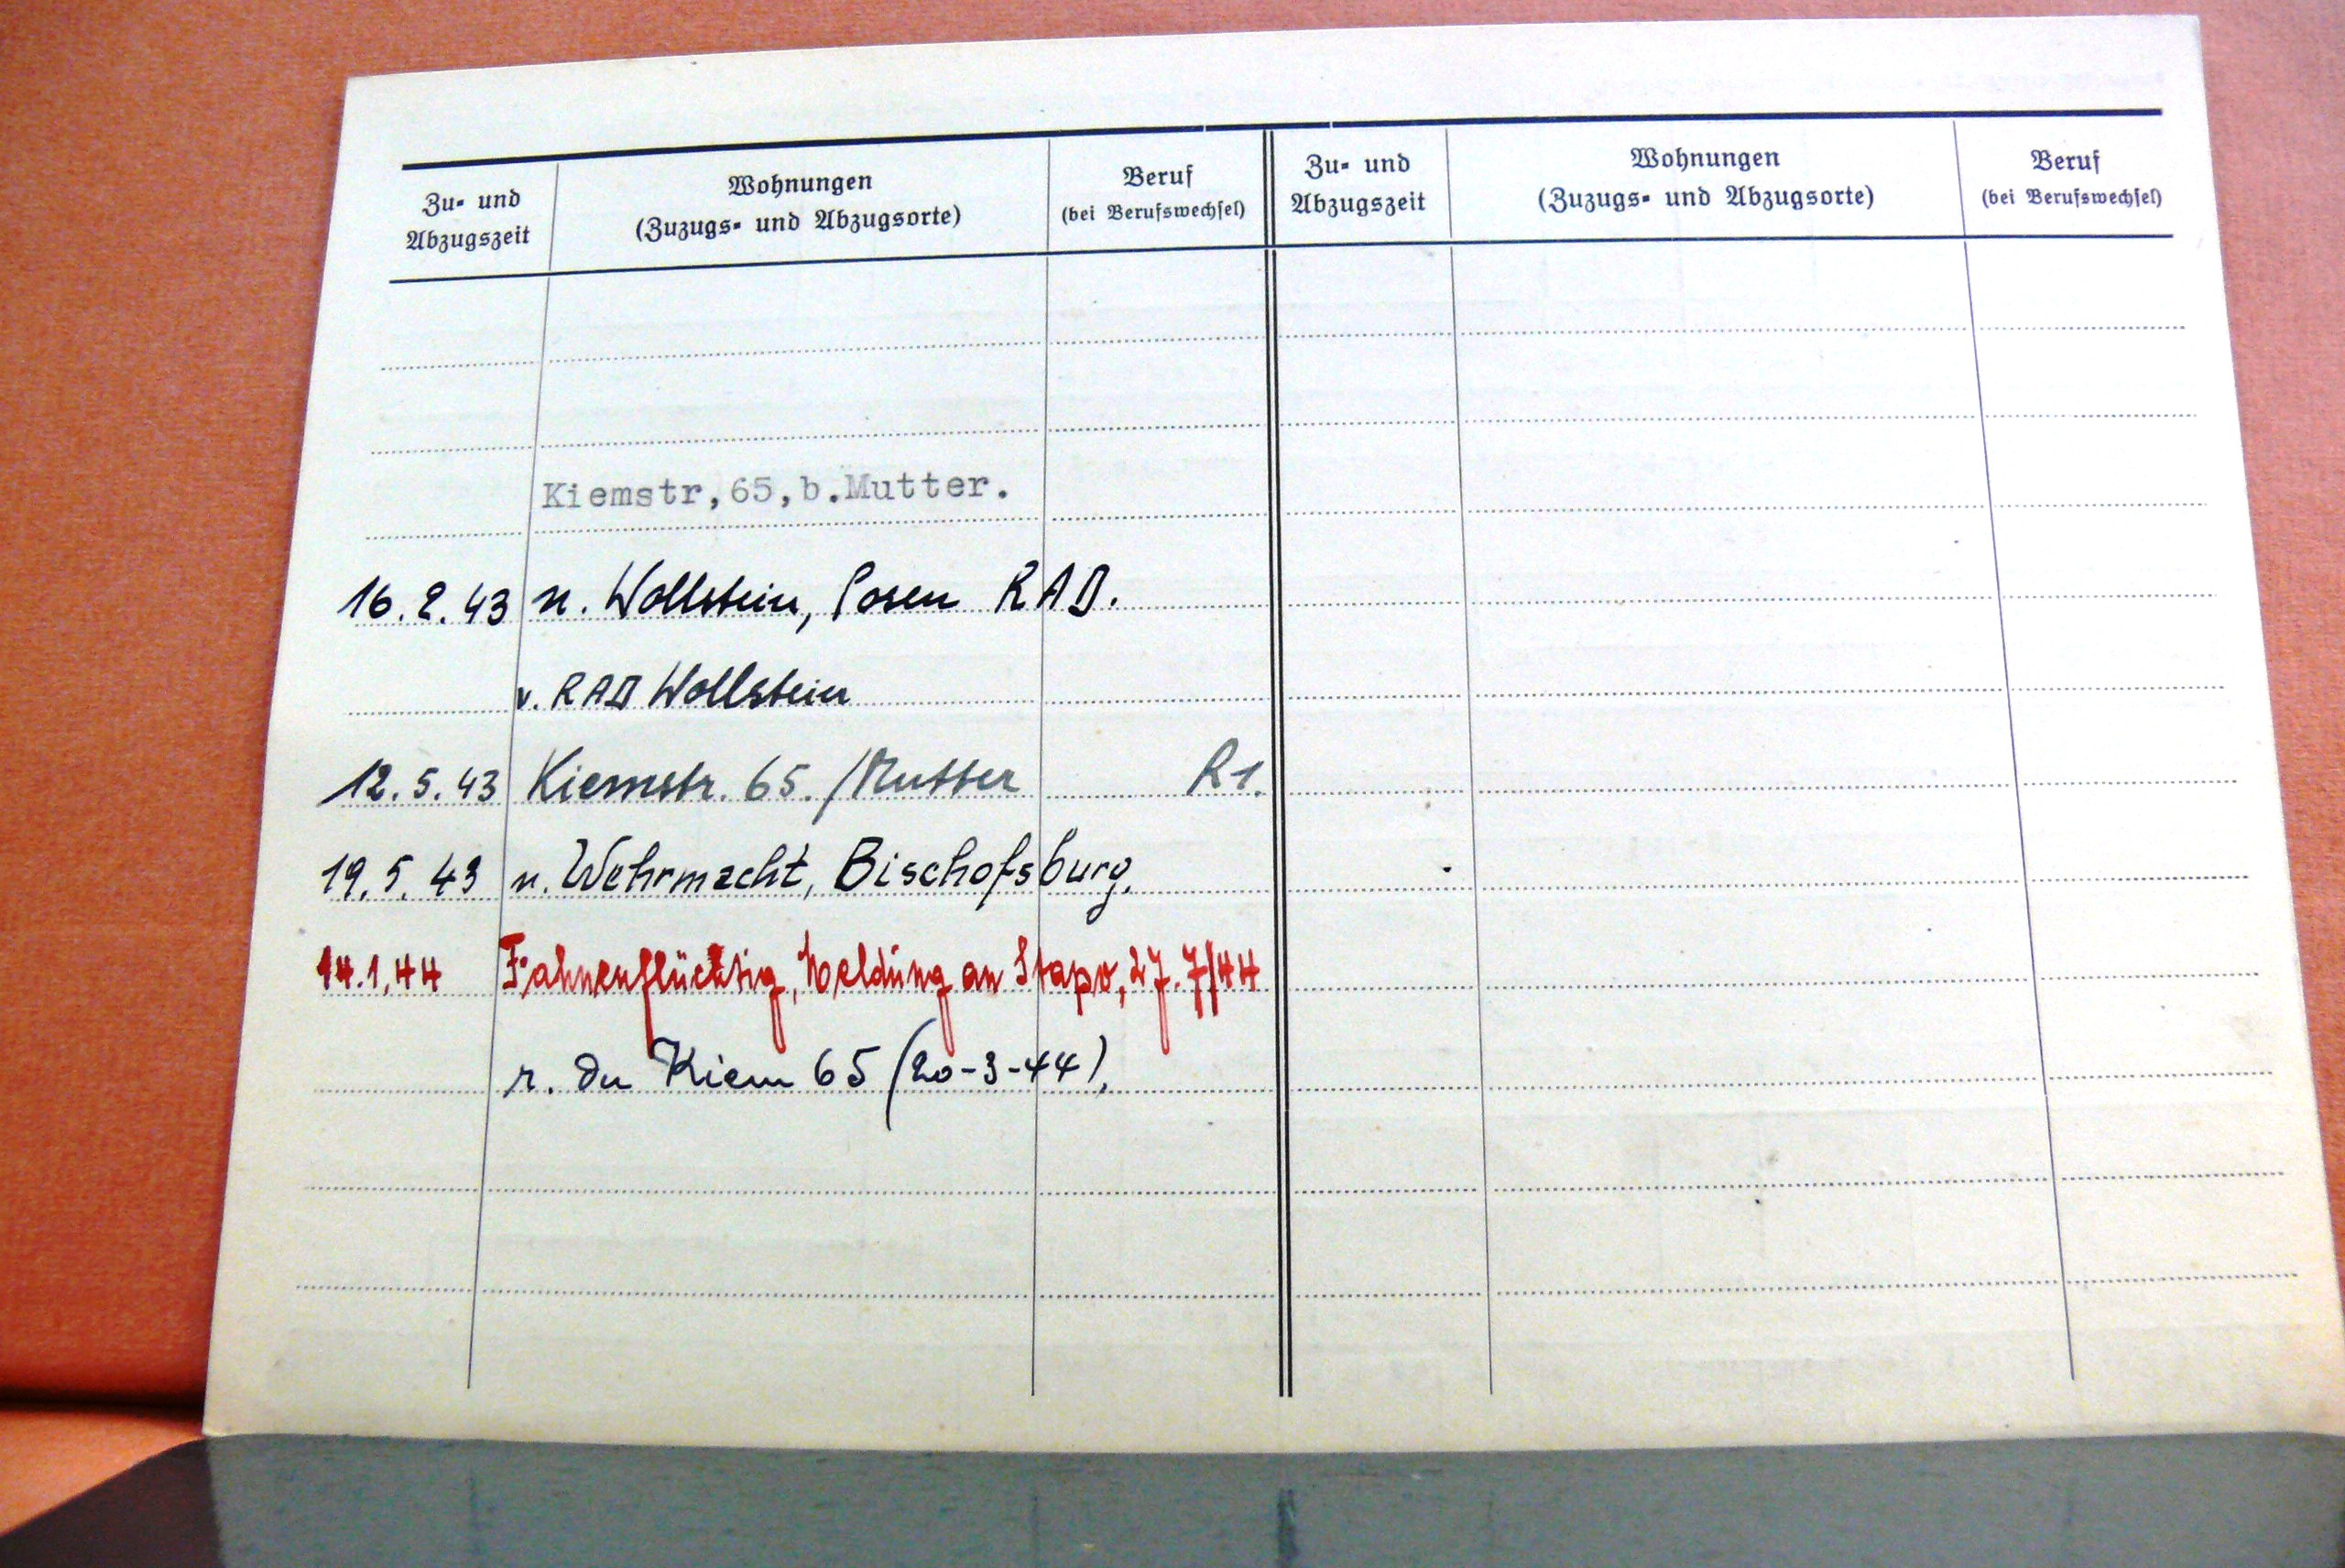 Zu- und Abzugszeit
Wohnungen
(Zuzugs- und Abzugsorte)
Beruf
(bei Berufswechsel)
Zu- und Abzugszeit
Wohnungen
(Zuzugs- und Abzugsorte)
Beruf
(bei Berufswechsel)
Kiemstr,65,b.Mutter.
16.2.43 n. Wollstein, Posen RAD.
v. RAD Wollstein
12.5.43 Kiemstr. 65./Mutter R1.
19.5.43 n. Wehrmacht, Bischofsburg.
14.1.44 Fahnenflüchtig, Meldung an Stapo, 27.7/44
r. du Kiem 65 (20-3-44).